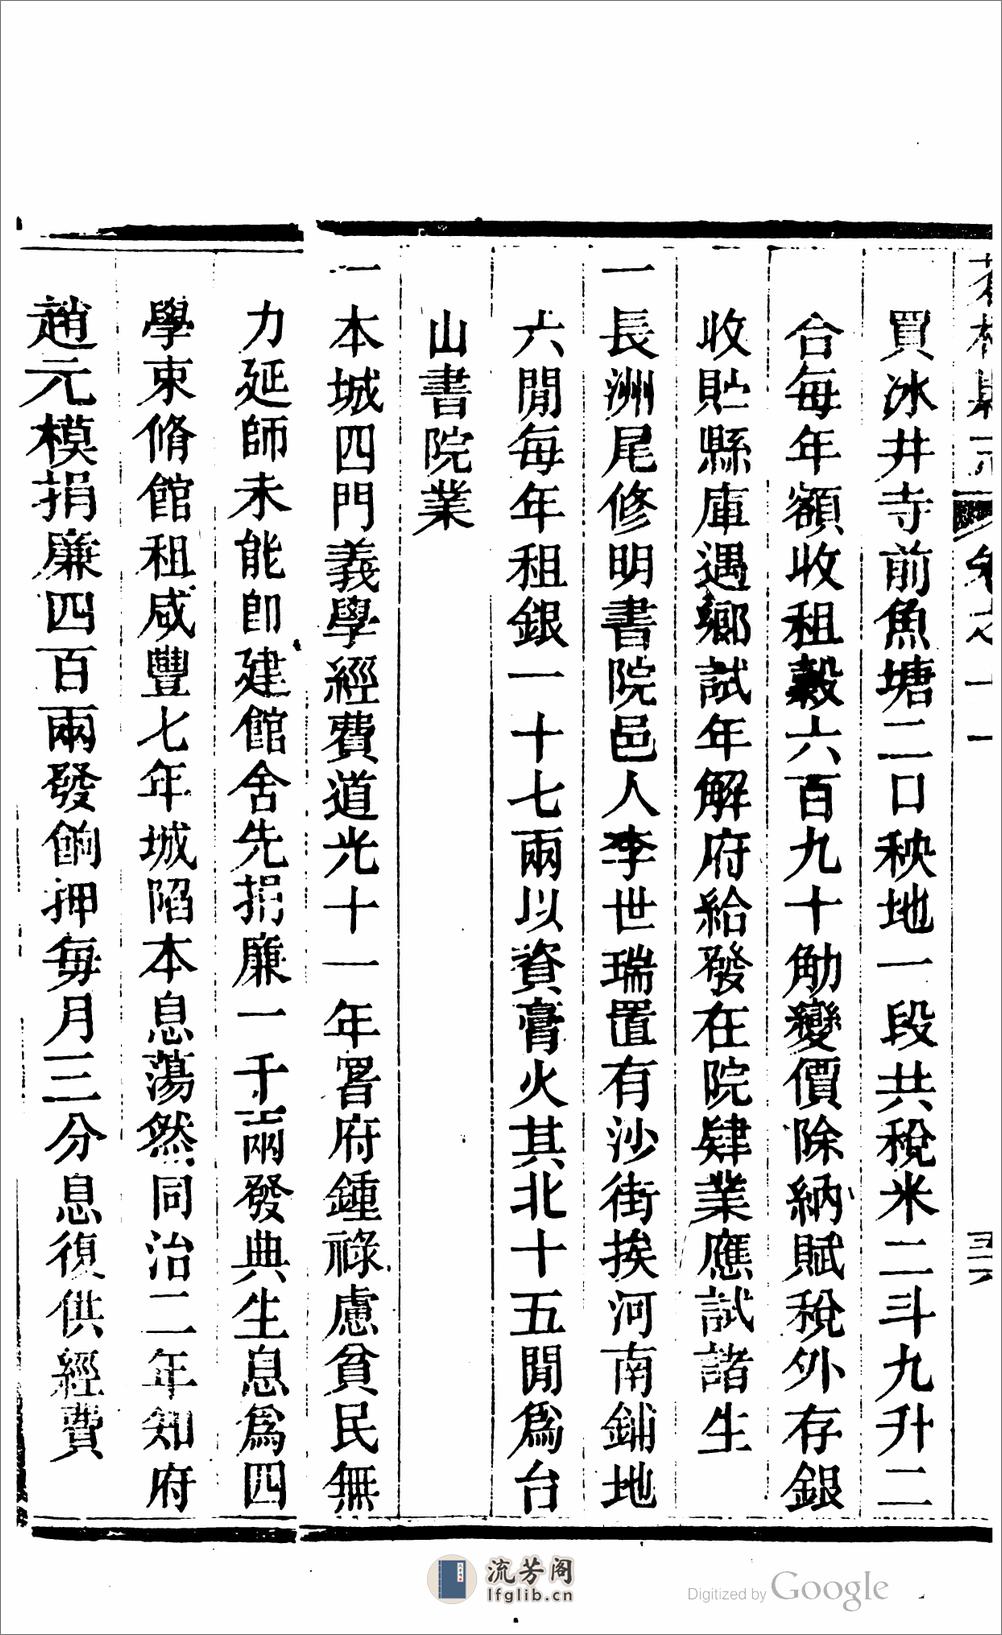 買冰井寺前魚塘二口秧地一段共稅米二斗九升二
合每年額收租穀六百九十觔變價除納賦稅外存銀
收貯縣庫遇鄉試年解府給發在院肄業應試諸生
一長洲尾修明書院邑人李世瑞置有沙街挨河南鋪地
六間每年租銀一十七兩以資膏火其北十五間為台
山書院業
一本城四門義學經費道光十一年署府鍾祿慮貧民無
力延師未能卽建館舍先捐廉一千兩發典生息為四
學束脩館租咸豐七年城陷本息蕩然同治二年知府
趙元模捐廉四百兩發餉押每月三分息復供經費
卷之十一
五六
流芳阁
lfglib.cn
Digitized by Google